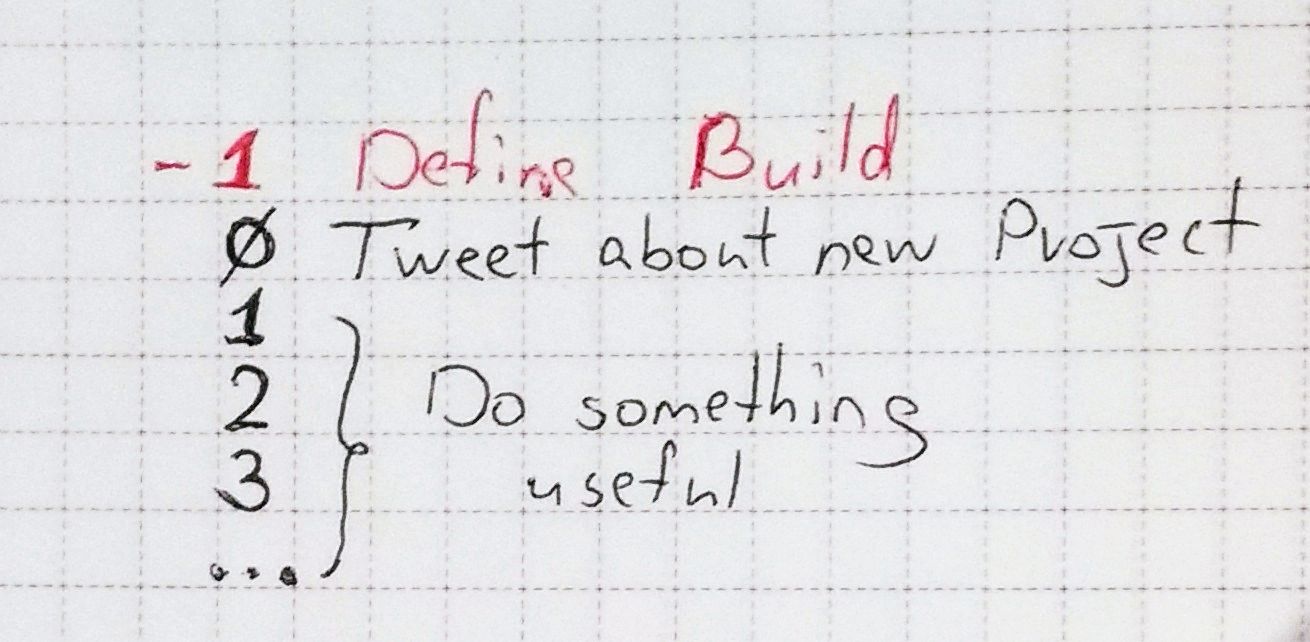 -1 Define Build
0 Tweet about new Project
1
2 Do something
3 useful
...